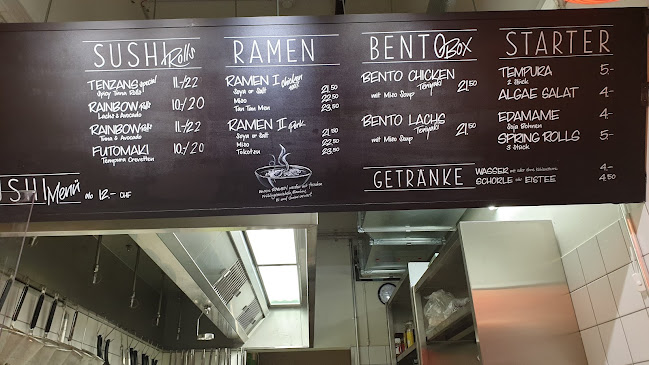 SUSHI Rolls
TENZANS special 11.-/22
Spicy Tuna Rolls
RAINBOW Rolls 10.-/20
Lachs & Avocado
RAINBOW Rolls 11.-/22
Tuna & Avocado
FUTOMAKI 10.-/20
Tempura Crevetten
SUSHI Menü ab 12.- CHF
RAMEN
RAMEN I chicken
Soya or Salt 21.50
Miso 22.50
Tan Tan Men 23.50
RAMEN II Pork
Soya or Salt 21.50
Miso 22.50
Tokotzu 23.50
BENTO Box
BENTO CHICKEN
Teriyaki 21.50
mit Miso Soup
BENTO LACHS
Teriyaki 21.50
mit Miso Soup
STARTER
TEMPURA 5.-
2 Stück
ALGAE SALAT 4.-
EDAMAME 4.-
Soja Bohnen
SPRING ROLLS 5.-
3 Stück
GETRÄNKE
WASSER mit oder ohne Kohlensäure 4.-
SCHORLE ode EISTEE 4.50